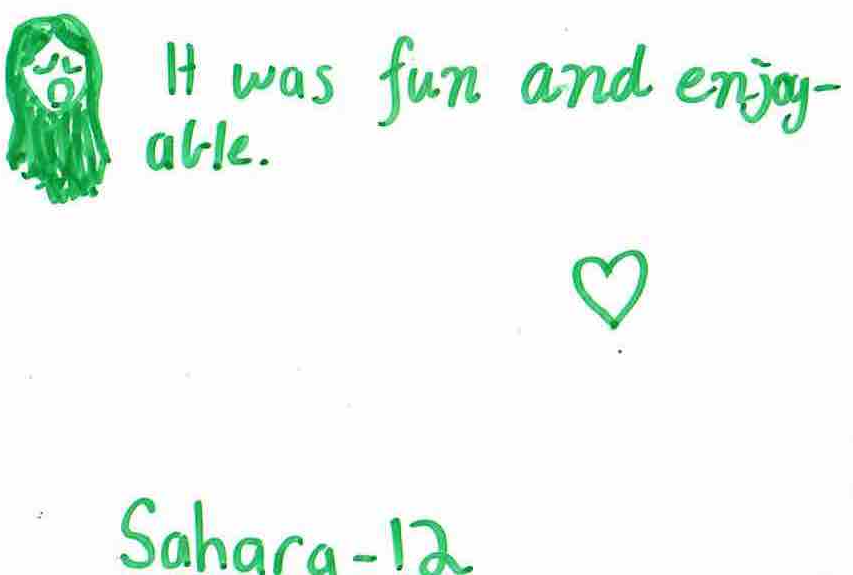 It was fun and enjoy-
able.
Sahara-12